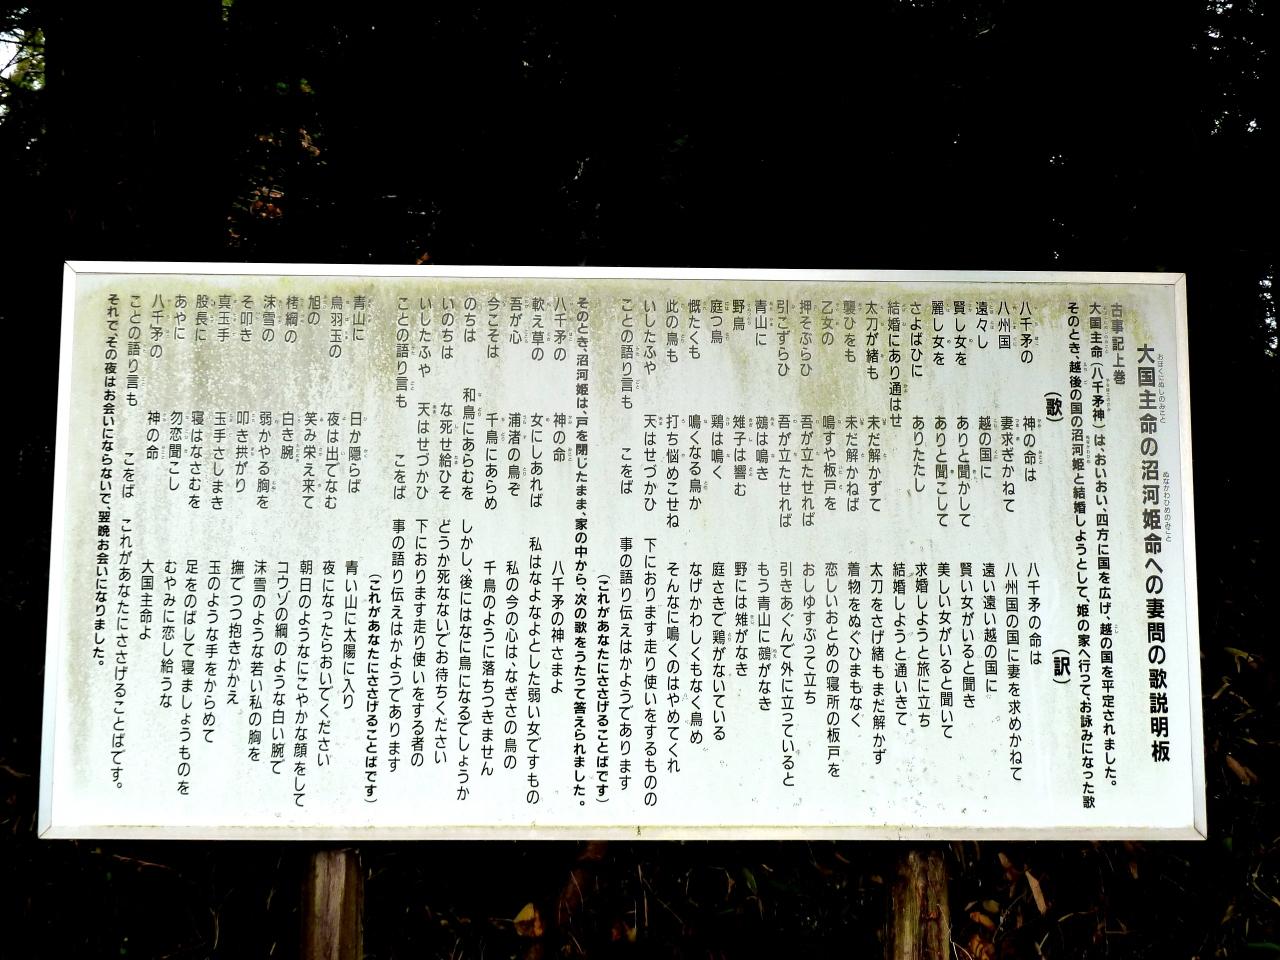 大国主命の沼河姫命への妻問の歌説明板
おほくにぬしのみこと
ぬなかわひめのみこと
古事記上巻
大国主命(八千矛神)は、おいおい、四方に国を広げ、越の国を平定されました。
そのとき、越後の国の沼河姫と結婚しようとして、姫の家へ行って、お詠みになった歌
(歌)
八千矛の 神の命は
八州国 妻求ぎかねて
遠々し 越の国に
賢し女を ありと聞かして
麗し女を ありと聞こして
さよばひに ありたたし
結婚にあり通はせ
太刀が緒も 未だ解かずて
襲ひをも 未だ解かねば
乙女の 鳴すや板戸を
押そぶらひ 吾が立たせれば
引こずらひ 吾が立たせれば
青山に 鵺は鳴き
野鳥 雉子は響む
庭つ鳥 鶏は鳴く
慨たくも 鳴くなる鳥か
此の鳥も 打ち悩めこせね
いしたふや 天はせづかひ
ことの語り言も こをば
(訳)
八千矛の命は
八州国の国に妻を求めかねて
遠い遠い越の国に
賢い女がいると聞き
美しい女がいると聞いて
求婚しようと旅に立ち
結婚しようと通いきて
太刀をさげ緒もまだ解かず
着物をぬぐひまもなく
恋しいおとめの寝所の板戸を
おしゆすぶって立ち
引きあぐんで外に立っていると
もう青山に鵺がなき
野には雉がなき
庭さきで鶏がないている
なげかわしくもなく鳥め
そんなに鳴くのはやめてくれ
下におります走り使いをするものの
事の語り伝えはかようであります
(これがあなたにささげることばです)
そのとき、沼河姫は、戸を閉じたまま、家の中から、次の歌をうたって答えられました。
八千矛の 神の命
軟え草の 女にしあれば
吾が心 浦渚の鳥ぞ
今こそは 千鳥にあらめ
のちは 和鳥にあらむを
いのちは な死せ給ひそ
いしたふや 天はせづかひ
ことの語り言も こをば
八千矛の神さまよ
私はなよなよとした弱い女ですもの
私の今の心は、なぎさの鳥の
千鳥のように落ちつきません
しかし、後にはなに鳥になるでしょうか
どうか死なないでお待ちください
下におります走り使いをする者の
事の語り伝えはかようであります
(これがあなたにささげることばです)
青山に 日か隠らば
烏羽玉の 夜は出でなむ
旭の 笑み栄え来て
栲綱の 白き腕
沫雪の 弱かやる胸を
そ叩き 叩き拱がり
真玉手 玉手さしまき
股長に 寝はなさむを
あやに 勿恋聞こし
八千矛の 神の命
ことの語り言も こをば
青い山に太陽に入り
夜になったらおいでください
朝日のようなにこやかな顔をして
コウゾの綱のような白い腕で
沫雪のような若い私の胸を
撫でつつ抱きかかえ
玉のような手をからめて
足をのばして寝ましょうものを
むやみに恋し給うな
大国主命よ
これがあなたにささげることばです。
それで、その夜はお会いにならないで、翌晩お会いになりました。